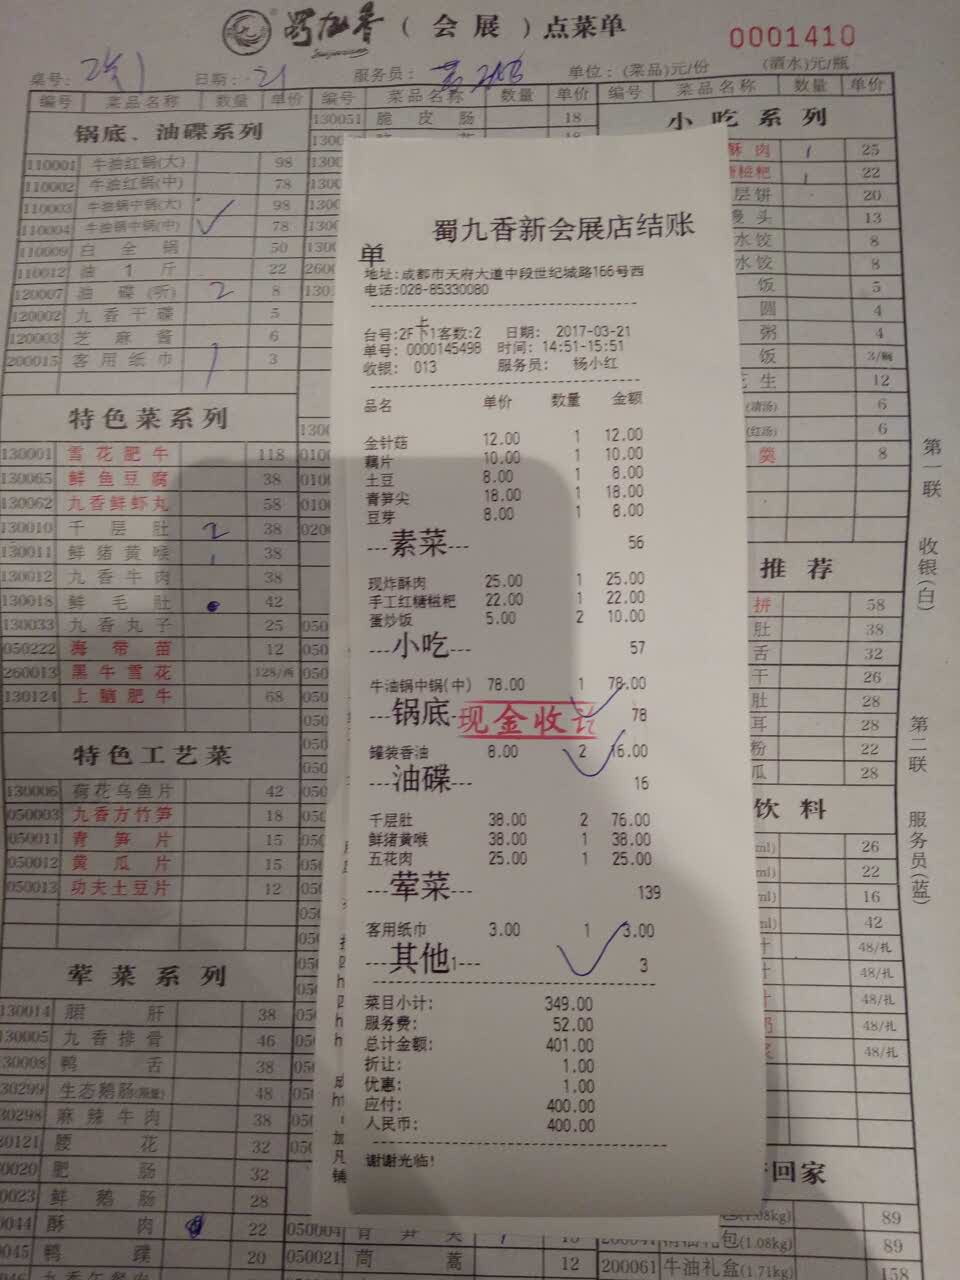 蜀九香(会展)点菜单
0001410
桌号: 日期: 21 服务员: 单位:(菜品)元/份 (酒水)元/瓶
编号 菜品名称 数量 单价 编号 菜品名称 数量 单价 编号 菜品名称 数量 单价
锅底、油碟系列
110001 牛油红锅(大) 98
110002 牛油红锅(中) 78
110003 牛油锅中锅(大) 98
110004 牛油锅中锅(中) 78
110009 白全锅 50
110012 油1斤 22
120007 油碟(听) 2 8
120002 九香干碟 5
120003 芝麻酱 6
200015 客用纸巾 1 3
特色菜系列
130001 雪花肥牛 118
130065 鲜鱼豆腐 38
130062 九香鲜虾丸 58
130010 千层肚 2 38
130011 鲜猪黄喉 1 38
130012 九香牛肉 38
130018 鲜毛肚 42
130033 九香丸子 25
050222 海带苗 12
260013 黑牛雪花 128/两
130124 上脑肥牛 68
特色工艺菜
130006 荷花乌鱼片 42
050003 九香方竹笋 18
050011 青笋片 15
050012 黄瓜片 15
050013 功夫土豆片 12
荤菜系列
130014 腊肝 38
130005 九香排骨 46
130008 鸭舌 38
130299 生态鹅肠 48
130298 麻辣牛肉 38
130121 腰花 32
0020 肥肠 32
0023 鲜鹅肠 28
0044 酥肉 22
0045 鸭蹼 20
130051 脆皮肠 18
蜀九香新会展店结账
单
地址:成都市天府大道中段世纪城路166号西
电话:028-85330080
台号:2F卡1客数:2 日期: 2017-03-21
单号: 0000145498 时间: 14:51-15:51
收银: 013 服务员: 杨小红
品名 单价 数量 金额
金针菇 12.00 1 12.00
藕片 10.00 1 10.00
土豆 8.00 1 8.00
青笋尖 18.00 1 18.00
豆芽 8.00 1 8.00
---素菜--- 56
现炸酥肉 25.00 1 25.00
手工红糖糍粑 22.00 1 22.00
蛋炒饭 5.00 2 10.00
---小吃--- 57
牛油锅中锅(中) 78.00 1 78.00
---锅底 78
现金收讫
罐装香油 8.00 2 16.00
---油碟--- 16
千层肚 38.00 2 76.00
鲜猪黄喉 38.00 1 38.00
五花肉 25.00 1 25.00
---荤菜--- 139
客用纸巾 3.00 1 3.00
---其他1--- 3
菜目小计: 349.00
服务费: 52.00
总计金额: 401.00
折让: 1.00
优惠: 1.00
应付: 400.00
人民币: 400.00
谢谢光临!
050021 茼蒿 12
小吃系列
酥肉 1 25
糍粑 1 22
层饼 20
馒头 13
水饺 8
水饺 8
饭 5
圆 4
粥 4
饭 3/碗
花生 12
(清汤) 6
(红汤) 6
羹 8
推荐
拼 58
肚 38
舌 32
干 26
肚 28
耳 28
粉 22
瓜 28
饮料
ml) 26
ml) 22
ml) 16
ml) 42
汁 48/扎
汁 48/扎
汁 48/扎
奶 48/扎
浆 48/扎
回家
包(1.08kg) 89
包(1.08kg) 89
200061 牛油礼盒(1.71kg) 158
第一联 收银(白)
第二联 服务员(蓝)